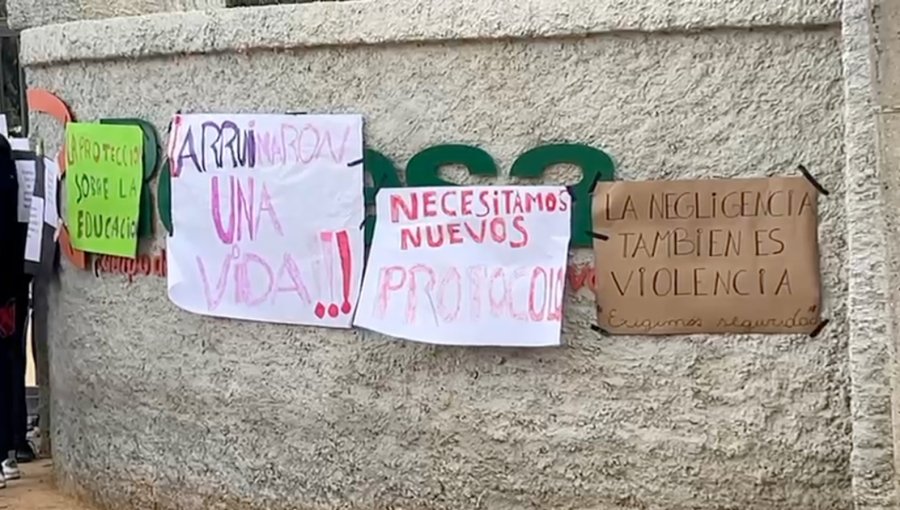 LA PROTECCIÓN
SOBRE LA
EDUCACIÓN
¡ARRUINARON
UNA
VIDA!!!
NECESITAMOS
NUEVOS
PROTOCOLO
LA NEGLIGENCIA
TAMBIEN ES
VIOLENCIA
Exigimos seguridad